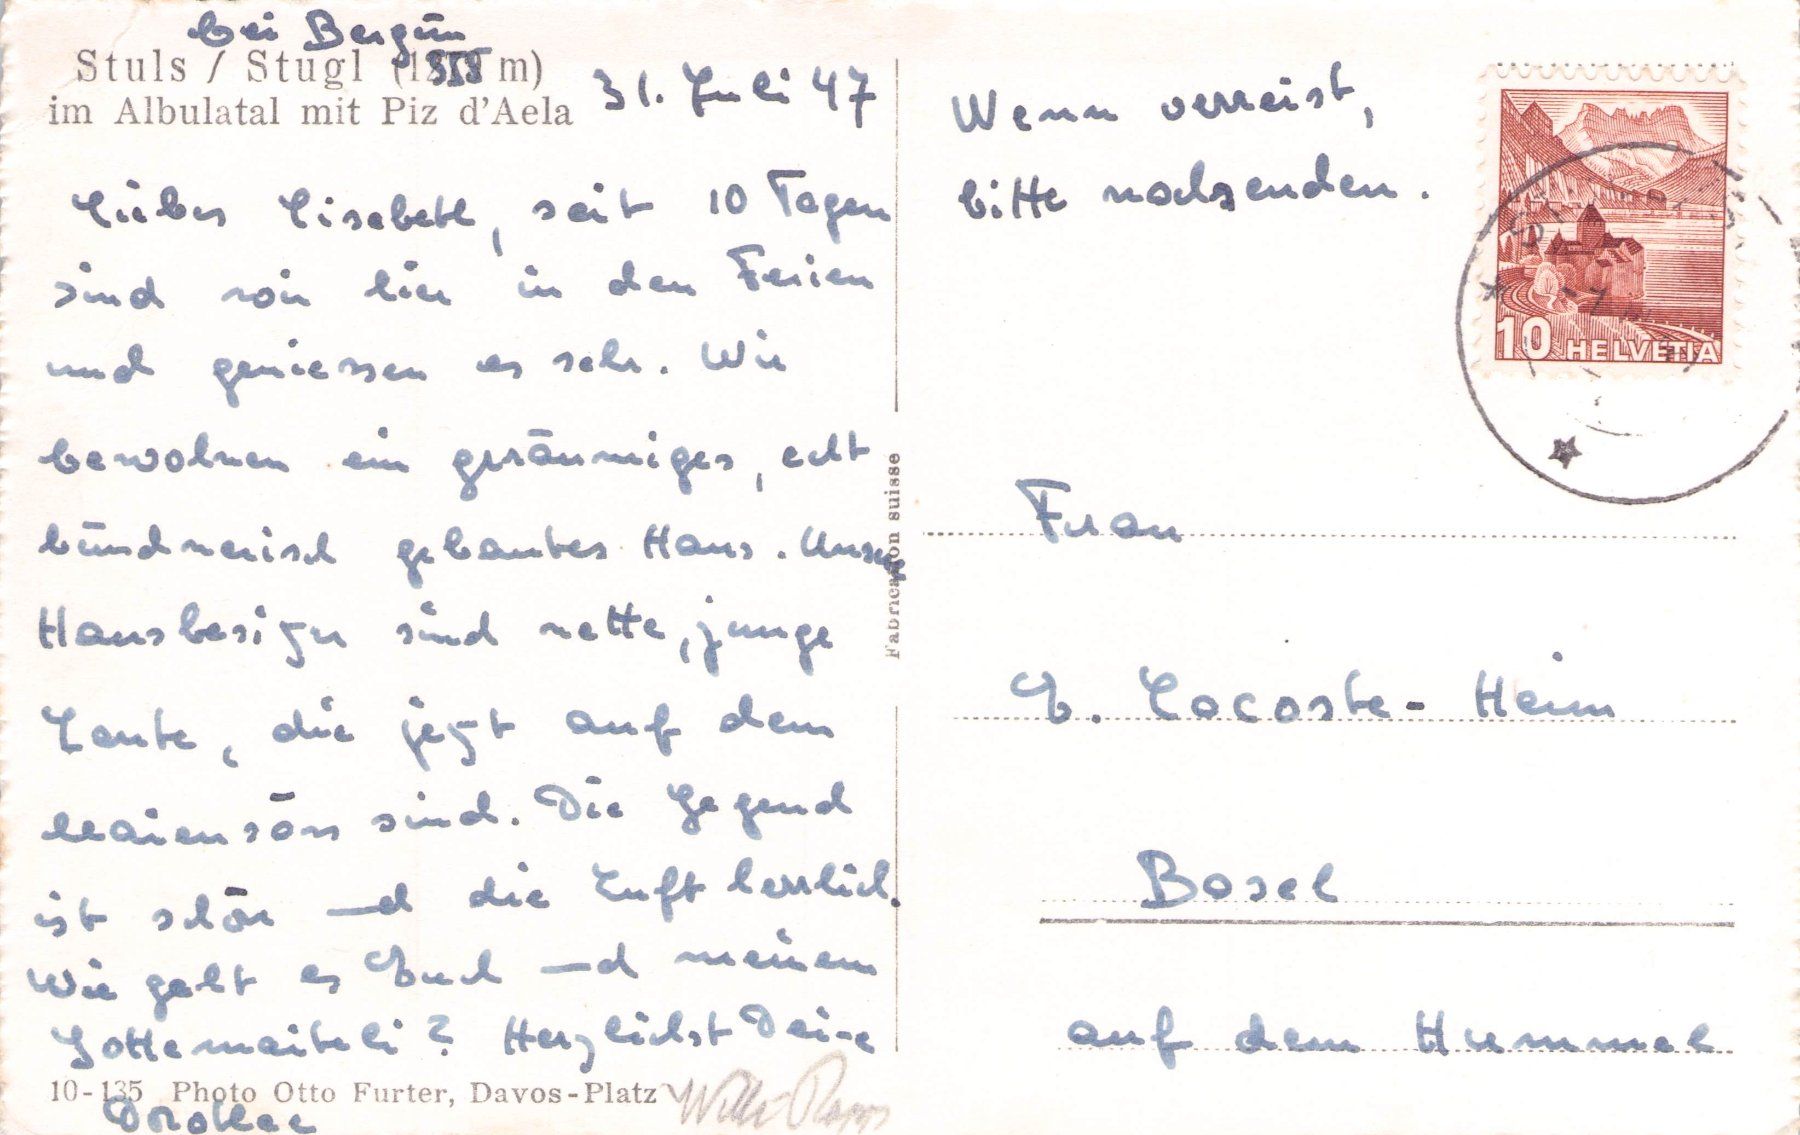 bei Bergün
Stuls / Stugl (1555 m)
im Albulatal mit Piz d'Aela
31. Juli 47
Liebes Lisebeth, seit 10 Tagen
sind wir hier in den Ferien
und geniessen es sehr. Wir
bewohnen ein geräumiges, echt
bündnerisch gebautes Haus. Unsere
Hausbesitzer sind nette, junge
Leute, die jetzt auf dem
Maiensäss sind. Die Gegend
ist schön und die Luft herrlich.
Wie geht es Euch und meinem
Gottemaiteli? Herzlichst Deine
10-135 Photo Otto Furter, Davos-Platz
Dorothee
Fabrication suisse
Wenn verreist,
bitte nachsenden.
10 HELVETIA
Frau
E. Lacoste-Heim
Basel
auf dem Hummel